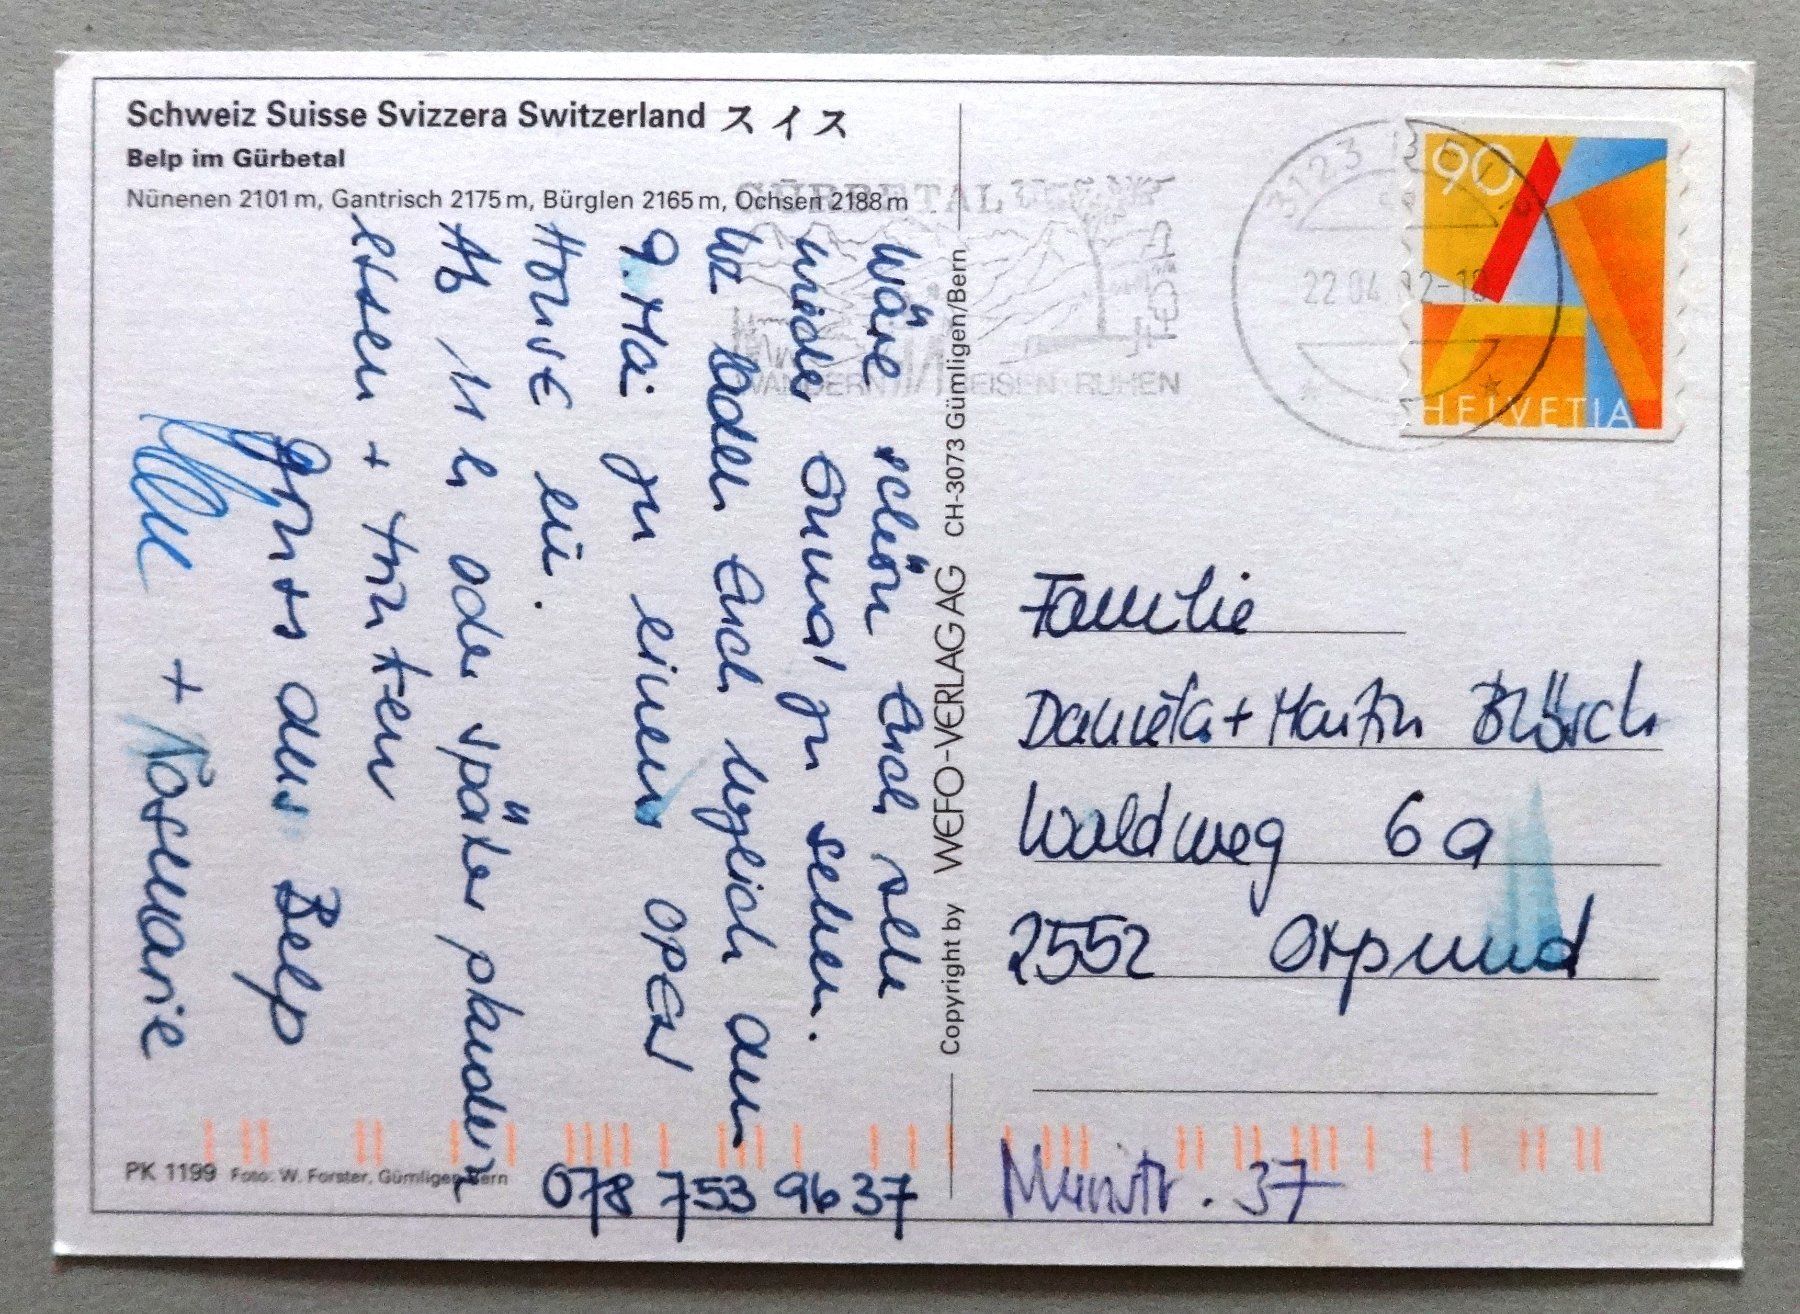 Schweiz Suisse Svizzera Switzerland スイス
Belp im Gürbetal
Nünenen 2101 m, Gantrisch 2175 m, Bürglen 2165 m, Ochsen 2188 m
wäre schön Euch alle
wieder einmal zu sehen.
Wir laden Euch herzlich am
9. Mai zu einem OPEN
HOUSE ein.
Ab 11 h oder später plaudern
essen + trinken
Gruss aus Belp
+ Rosemarie
078 753 96 37
PK 1199 Foto: W. Forster, Gümligen-Bern
Copyright by WEFO-VERLAG AG CH-3073 Gümligen/Bern
GÜRBETAL
WANDERN REISEN RUHEN
3123 BELP
22.04 12-18
90
A
HELVETIA
Familie
Daniela + Martin Blösch
Waldweg 6a
2552 Orpund
37